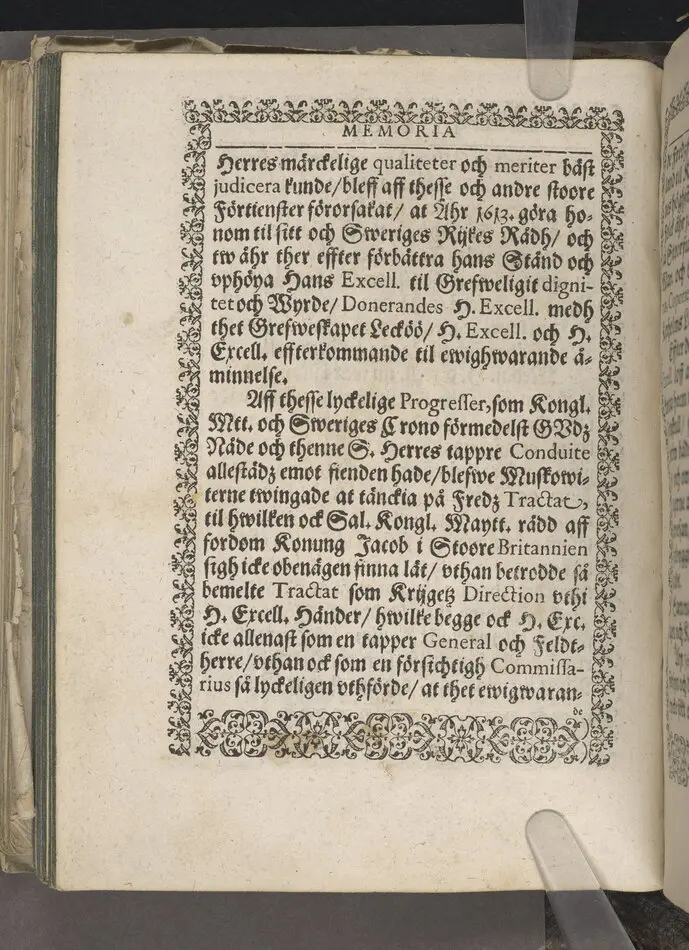 MEMORIA
Herres märckelige qualiteter och meriter bäst
judicera kunde/bleff aff thesse och andre stoore
Förtienster förorsakat/ at Åhr 1613. göra ho-
nom til sitt och Sweriges Rijkes Rådh/ och
tw åhr ther effter förbättra hans Stånd och
vphöya Hans Excell. til Grefweligit digni-
tet och Wyrde/ Donerandes H. Excell. medh
thet Grefweskapet Lecköö/ H. Excell. och H.
Excell. effterkommande til ewighwarande å-
minnelse.
Aff thesse lyckelige Progresser, som Kongl.
Mtt. och Sweriges Crono förmedelst GVdz
Nåde och thenne S. Herres tappre Conduite
allestädz emot fienden hade/blefwe Muskowi-
terne twingade at tänckia på Fredz Tractat,
til hwilken ock Sal. Kongl. Maytt. rädd aff
fordom Konung Jacob i Stoore Britannien
sigh icke obenägen finna lät/ vthan betrodde så
bemelte Tractat som Krijgetz Direction vthi
H. Excell. Händer/ hwilke begge ock H. Exc.
icke allenast som en tapper General och Feldt-
herre/vthan ock som en försichtigh Commissa-
rius så lyckeligen vthförde/ at thet ewigwaran-
de